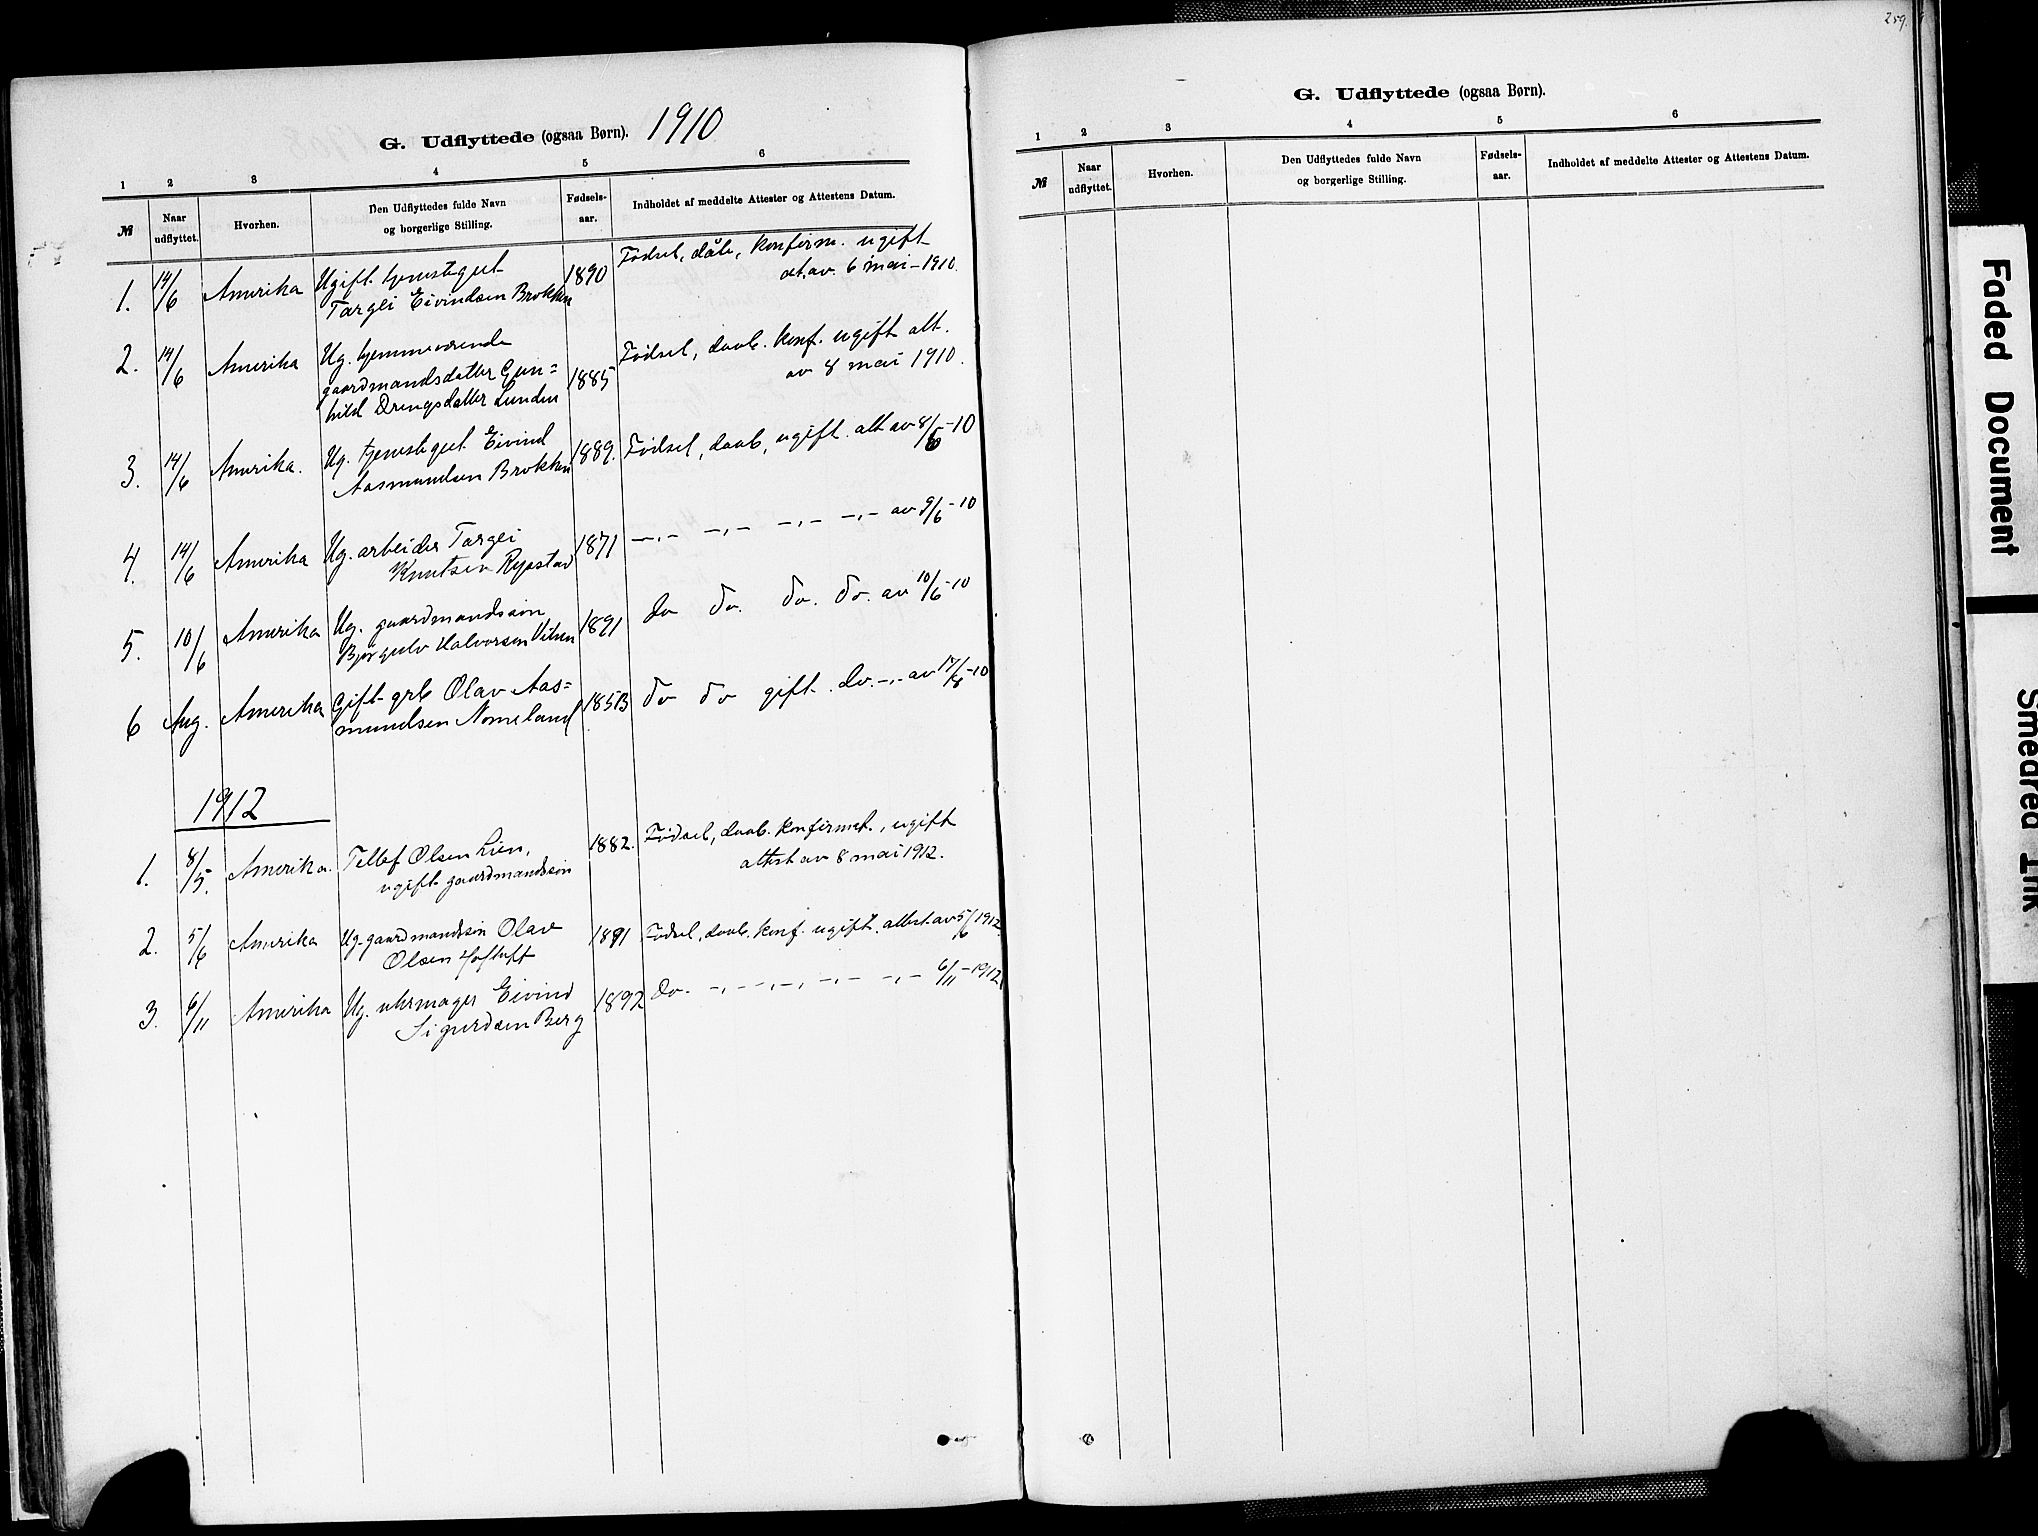 259.
G. Udflyttede (ogsaa Børn). 1910
1 2 3 4 5 6
№ Naar udflyttet. Hvorhen. Den Udflyttedes fulde Navn og borgerlige Stilling. Fødsels-aar. Indholdet af meddelte Attester og Attestens Datum.
1. 14/6 Amerika Ugift tjenestegut 1890 Fødsel, dåb, konfirm. ugift
Targei Eivindsen Brokken att. av 6 mai - 1910.
2. 14/6 Amerika Ug. hjemmeværende Fødsel, daab. konf. ugift att.
gaardmandsdatter Gun= 1885 av 8 mai 1910.
hild Drengsdatter Lunden
3. 14/6 Amerika. Ug. tjenestegut Eivind 1889. Fødsel, daab, ugift. att av 8/6-10
Aasmundsen Brokken
4. 14/6 Amerika Ug. arbeider Targei 1871 —„— —„— —„— —„— av 9/6-10
Knutsen Rysstad
5. 10/6 Amerika Ug. gaardmandssøn 1891 do do. do. do. av 10/6-10
Bjørgulv Halvorsen Viken
6 Aug. Amerika Gift grb Olav Aas= 1853 do do gift. do. —„— av 17/8-10
mundsen Nomeland
1912
1. 8/5. Amerika. Tellef Olsen Lien, 1882. Fødsel, daab. konfirmat., ugift
ugift gaardmandssøn attest av 8 mai 1912.
2. 5/6 Amerika Ug. gaardmandssøn Olav 1891 Fødsel, daab. konf. ugift. attest. av 5/6 1912.
Olsen Hoftuft
3. 6/11 Amerika Ug. uhrmager Eivind 1892 Do. —„— —„— —„— —„— 6/11-1912
Sigurdsen Berg
G. Udflyttede (ogsaa Børn).
1 2 3 4 5 6
№ Naar udflyttet. Hvorhen. Den Udflyttedes fulde Navn og borgerlige Stilling. Fødsels-aar. Indholdet af meddelte Attester og Attestens Datum.
Faded Document
Smeared Ink